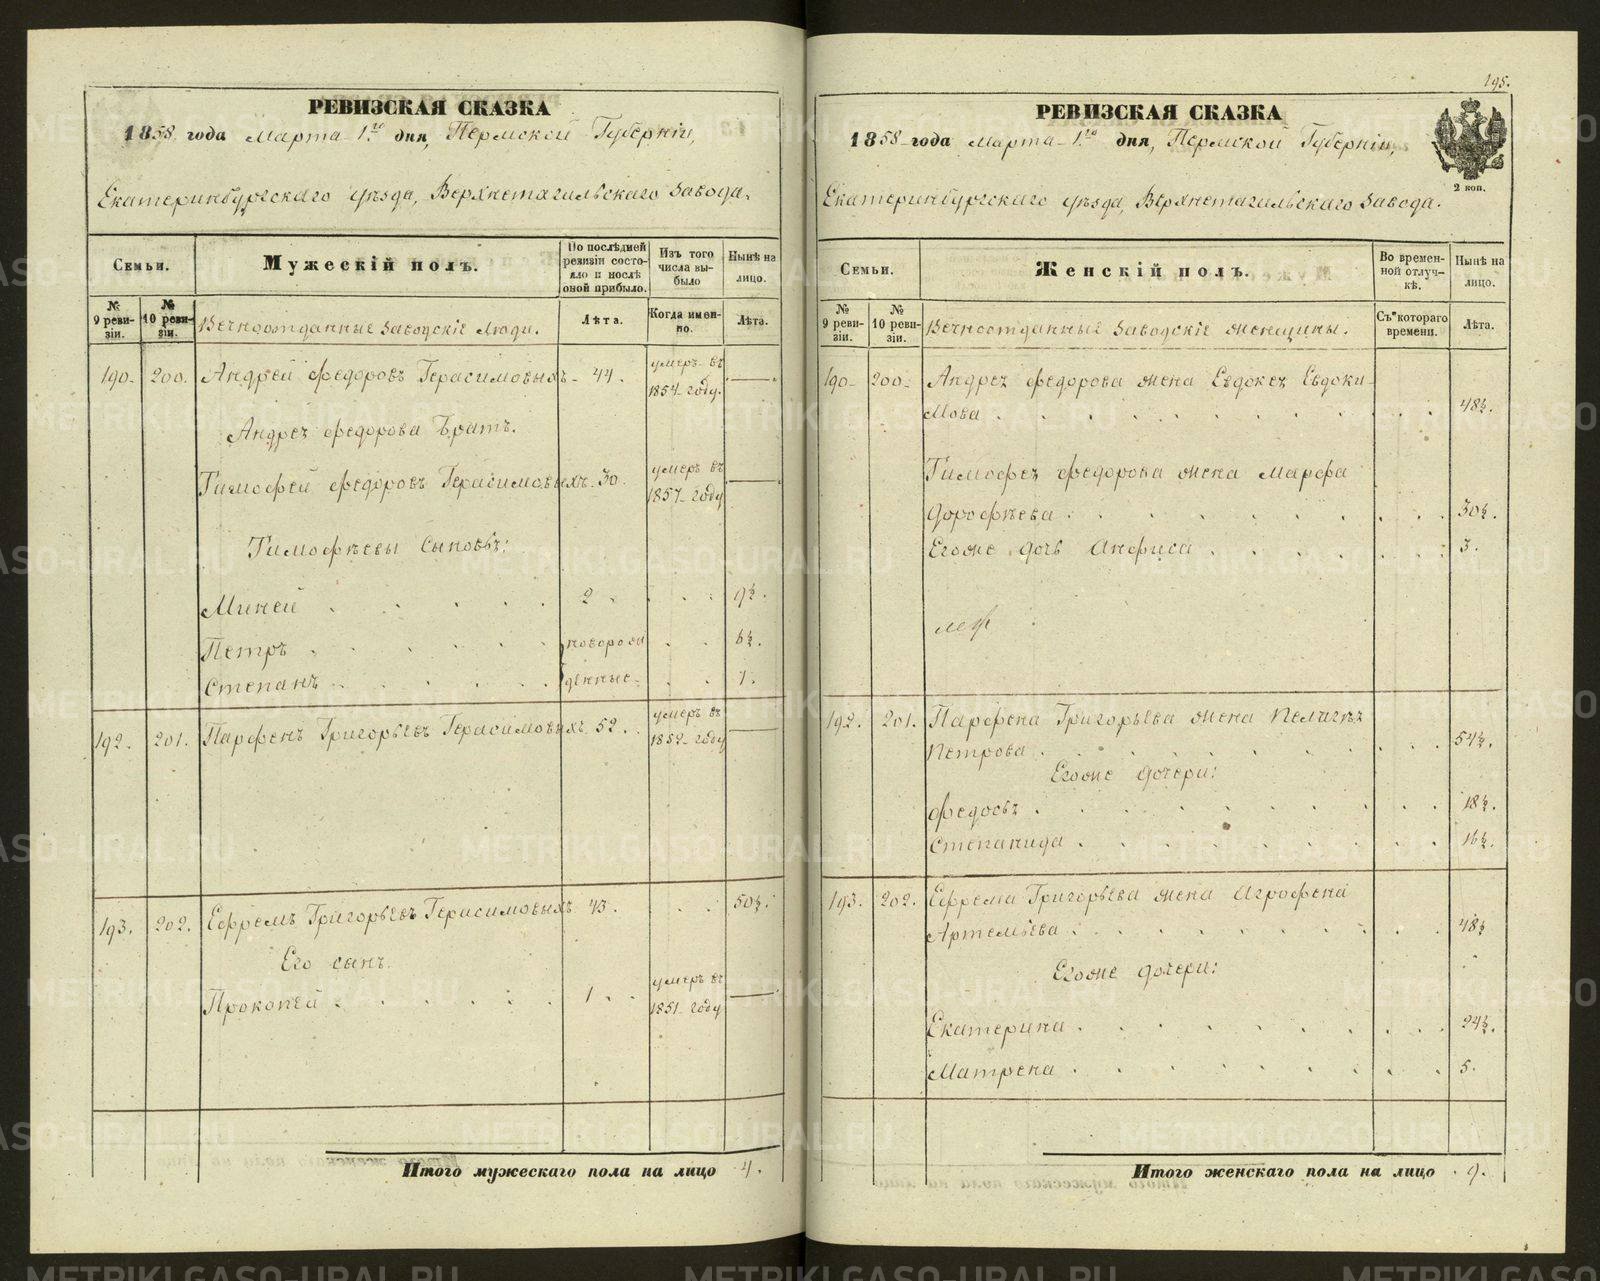 РЕВИЗСКАЯ СКАЗКА
1858 года Марта 1го дня, Пермской Губернiи,
Екатеринбургскаго уѣзда, Верхнетагильскаго завода.
Семьи.
Мужескiй полъ.
По послѣдней ревизiи состояло и послѣ оной прибыло.
Изъ того числа выбыло
Нынѣ на лицо.
№ 9 ревизiи.
№ 10 ревизiи.
Вечноотданные заводскiе люди.
Лѣта.
Когда именно.
Лѣта.
190. 200. Андрей Федоровъ Герасимовыхъ 44. умеръ въ 1854 году.
Андрея Федорова Братъ.
Тимофей Федоровъ Герасимовыхъ 30. умеръ въ 1857 году
Тимофѣевы сыновья:
Миней 2 9½.
Петръ новорож 6½.
Степанъ денные 1.
192. 201. Парфенъ Григорьевъ Герасимовыхъ 52. умеръ въ 1852 году
193. 202. Ефремъ Григорьевъ Герасимовыхъ 43. 50½.
Его сынъ.
Прокопей 1 умеръ въ 1851 году
Итого мужескаго пола на лицо 4.
195.
РЕВИЗСКАЯ СКАЗКА
1858 года Марта 1го дня, Пермской Губернiи,
2 коп.
Екатеринбургскаго уѣзда, Верхнетагильскаго завода.
Семьи.
Женскiй полъ.
Во временной отлучкѣ.
Нынѣ на лицо.
№ 9 ревизiи.
№ 10 ревизiи.
Вечноотданные заводскiе женщины.
Съ котораго времени.
Лѣта.
190. 200. Андрея Федорова жена Евдокея Евдоки-
мова 48½.
Тимофея Федорова жена Марфа
Дорофѣева 30½.
Егоже дочь Анфиса 3.
192. 201. Парфена Григорьева жена Пелагея
Петрова 54½.
Егоже дочери:
Федосья 18½.
Степанида 16½.
193. 202. Ефрема Григорьева жена Агрофена
Артемьева 48½
Егоже дочери:
Екатерина 24½.
Матрена 5.
Итого женскаго пола на лицо 9.
METRIKI.GASO-URAL.RU